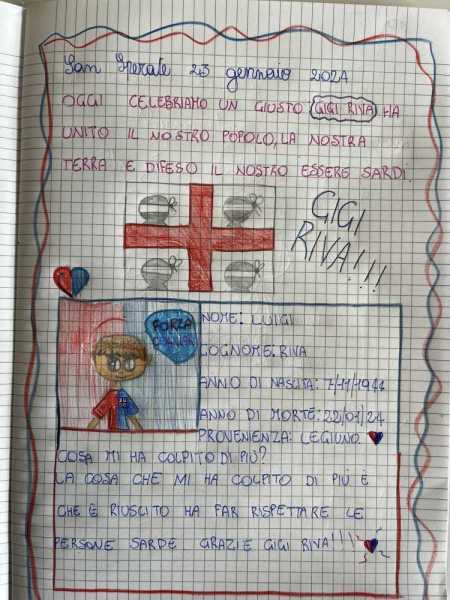 San Sperate 23 gennaio 2024
OGGI CELEBRIAMO UN GIUSTO GIGI RIVA HA
UNITO IL NOSTRO POPOLO, LA NOSTRA
TERRA E DIFESO IL NOSTRO ESSERE SARDI.
GIGI
RIVA!!!
FORZA
CAGLIARI
NOME: LUIGI
COGNOME: RIVA
ANNO DI NASCITA: 7/11/1944
ANNO DI MORTE: 22/01/24
PROVENIENZA: LEGIUNO.
COSA MI HA COLPITO DI PIÙ?
LA COSA CHE MI HA COLPITO DI PIÙ È
CHE È RIUSCITO HA FAR RISPETTARE LE
PERSONE SARDE GRAZIE GIGI RIVA!!!!